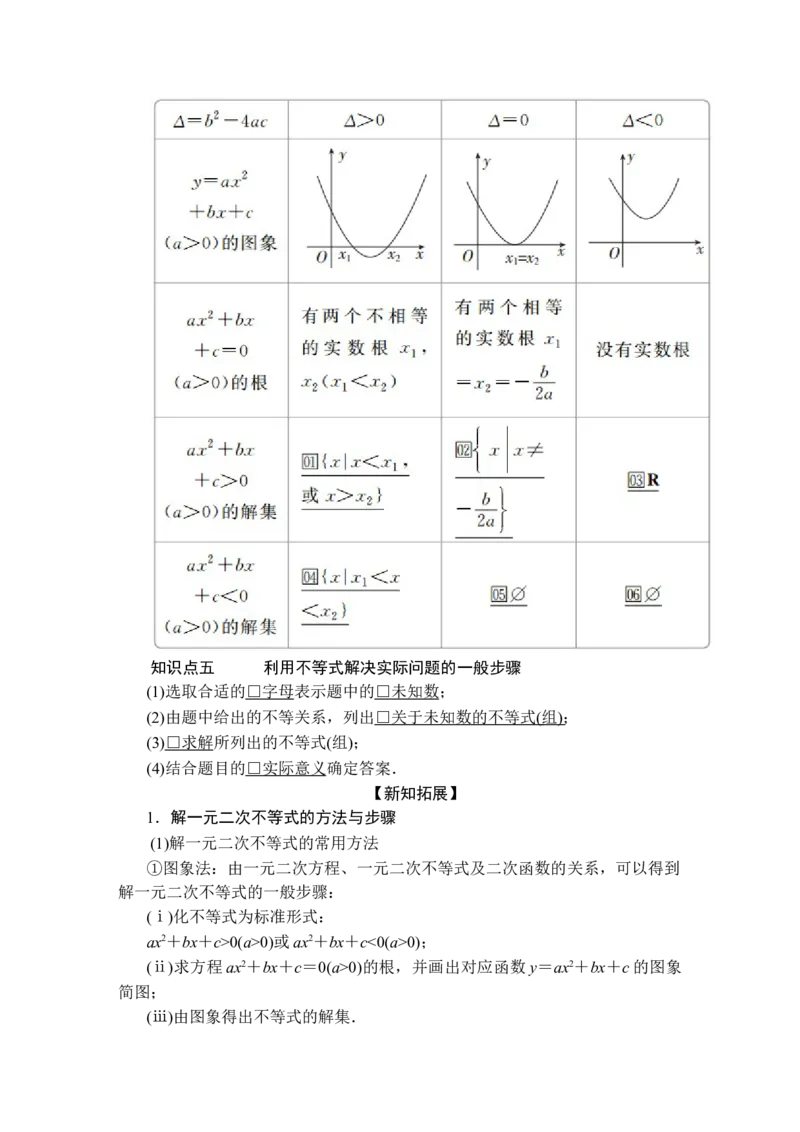 Δ=b²-4ac Δ>0 Δ=0 Δ<0
y=ax²
+bx+c
(a>0)的图象
y O x₁ x₂ x
y O x₁=x₂ x
y O x
ax²+bx
+c=0
(a>0)的根
有两个不相等
的实数根 x₁，
x₂(x₁<x₂)
有两个相等
的实数根 x₁
=x₂=-b/2a
没有实数根
ax²+bx
+c>0
(a>0)的解集
01{x|x<x₁，
或 x>x₂}
02{x|x≠
-b/2a}
03R
ax²+bx
+c<0
(a>0)的解集
04{x|x₁<x
<x₂}
05∅
06∅
知识点五 利用不等式解决实际问题的一般步骤
(1)选取合适的□字母表示题中的□未知数；
(2)由题中给出的不等关系，列出□关于未知数的不等式(组)；
(3)□求解所列出的不等式(组)；
(4)结合题目的□实际意义确定答案．
【新知拓展】
1．解一元二次不等式的方法与步骤
(1)解一元二次不等式的常用方法
①图象法：由一元二次方程、一元二次不等式及二次函数的关系，可以得到
解一元二次不等式的一般步骤：
(ⅰ)化不等式为标准形式：
ax2＋bx＋c>0(a>0)或ax2＋bx＋c<0(a>0)；
(ⅱ)求方程ax2＋bx＋c＝0(a>0)的根，并画出对应函数y＝ax2＋bx＋c的图象
简图；
(ⅲ)由图象得出不等式的解集．